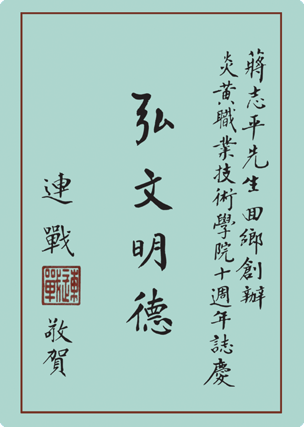 蔣志平先生回鄉創辦
炎黃職業技術學院十週年誌慶
弘文明德
連戰
敬賀